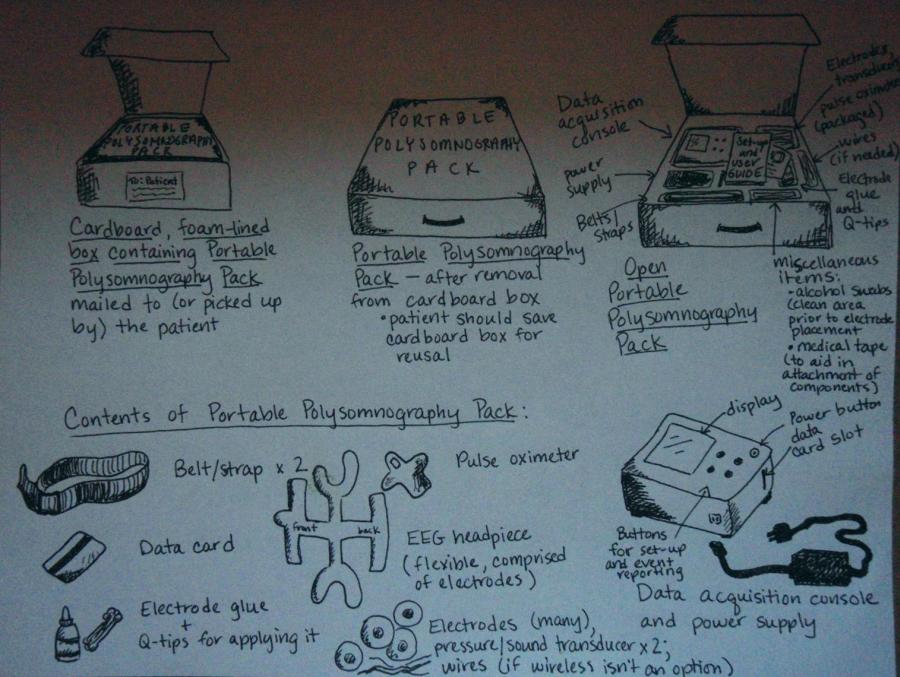 PORTABLE
POLYSOMNOGRAPHY
PACK
To: Patient
Cardboard, foam-lined
box containing Portable
Polysomnography Pack
mailed to (or picked up
by) the patient
PORTABLE
POLYSOMNOGRAPHY
PACK
Portable Polysomnography
Pack — after removal
from cardboard box
• patient should save
cardboard box for
reusal
Data
acquisition
console
power
supply
Belts/
straps
Set-up
and
user
GUIDE
Electrodes,
transducers
pulse oximeter
(packaged)
wires
(if needed)
Electrode
glue
and
Q-tips
Open
Portable
Polysomnography
Pack
miscellaneous
items:
• alcohol swabs
(clean area
prior to electrode
placement
• medical tape
(to aid in
attachment of
components)
Contents of Portable Polysomnography Pack:
Belt/strap x 2
Data card
Electrode glue
+
Q-tips for applying it
front
back
Pulse oximeter
EEG headpiece
(flexible, comprised
of electrodes)
Electrodes (many),
pressure/sound transducer x 2;
wires (if wireless isn't an option)
display
Power button
data
card slot
Buttons
for set-up
and event
reporting
Data acquisition console
and power supply